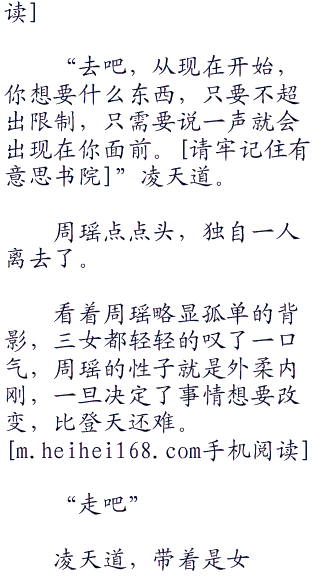 读]
“去吧，从现在开始，
你想要什么东西，只要不超
出限制，只需要说一声就会
出现在你面前。[请牢记住有
意思书院]”凌天道。
周瑶点点头，独自一人
离去了。
看着周瑶略显孤单的背
影，三女都轻轻的叹了一口
气，周瑶的性子就是外柔内
刚，一旦决定了事情想要改
变，比登天还难。
[m.heihei168.com手机阅读]
“走吧”
凌天道，带着是女